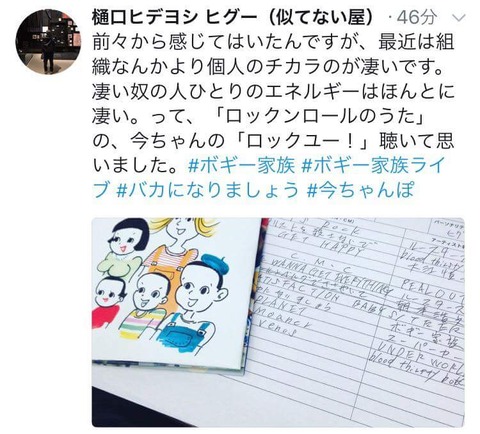 樋口ヒデヨシ ヒグー（似てない屋）・46分
前々から感じてはいたんですが、最近は組
織なんかより個人のチカラのが凄いです。
凄い奴の人ひとりのエネルギーはほんとに
凄い。って、「ロックンロールのうた」
の、今ちゃんの「ロックユー！」聴いて思
いました。#ボギー家族 #ボギー家族ライ
ブ #バカになりましょう #今ちゃんぽ
GET HAPPY
C M - C
WANNA GET EVERYTHING
PLANET
Venus
blood thirsty
PEALOUT
ルースターズ
ボギー家族
スーパーカー
UNDERWORLD
blood thirsty